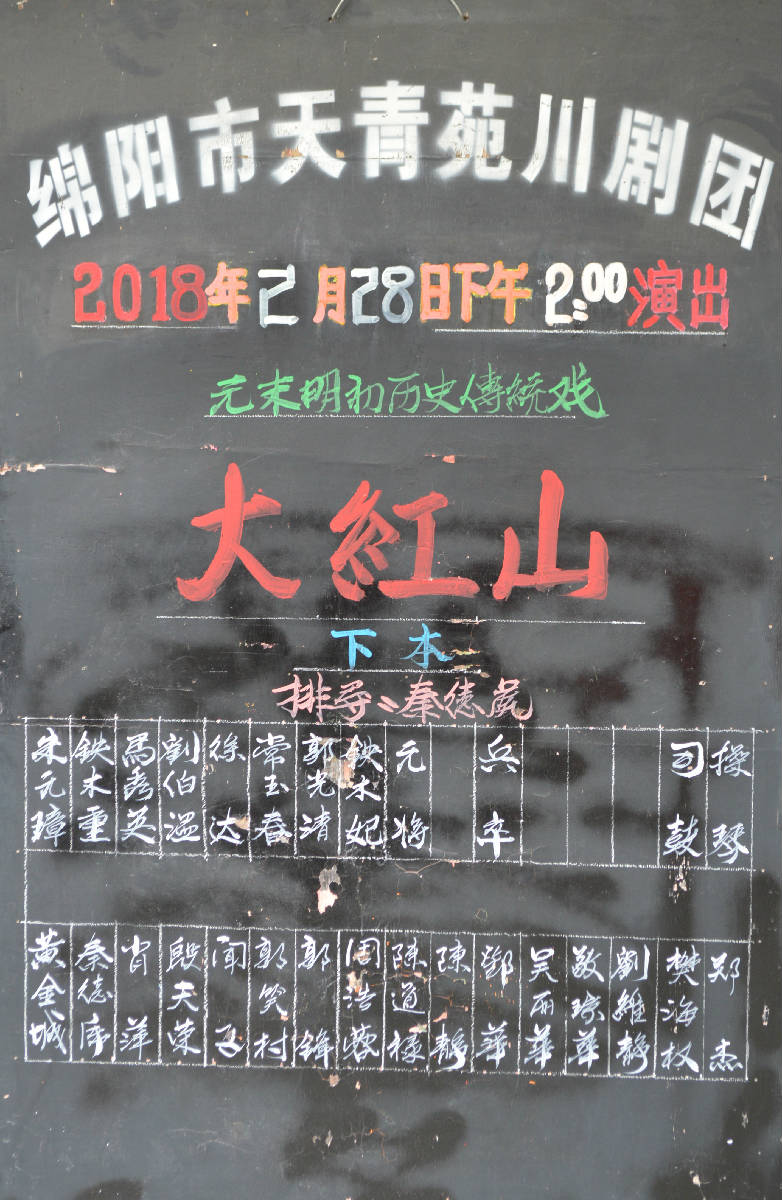 绵阳市天青苑川剧团
2018年2月28日下午2:00演出
元末明初历史傳統戏
大紅山
下本
排导:秦德
朱元璋 鉄木重 馬秀英 劉伯溫 徐达 常玉春 郭光清 鉄木妃 元将 兵卒 司鼓 操琴
黄金城 秦德 肖萍 殷夫荣 闻 郭笑村 郭锋 周浩蓉 陈道禄 陳静 鄧華 吴丽華 敬琼華 劉維静 樊海权 郑杰